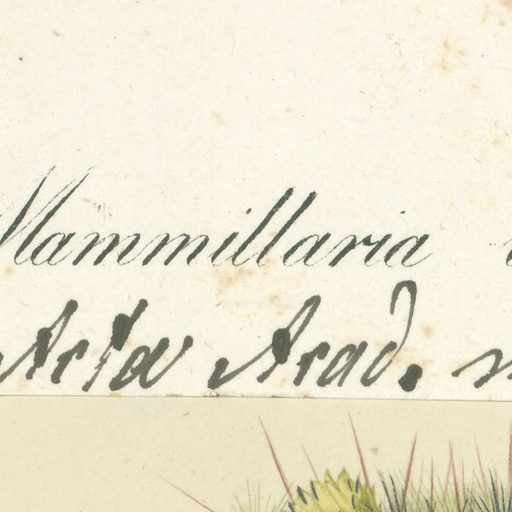 Mammillaria
Acta Acad.